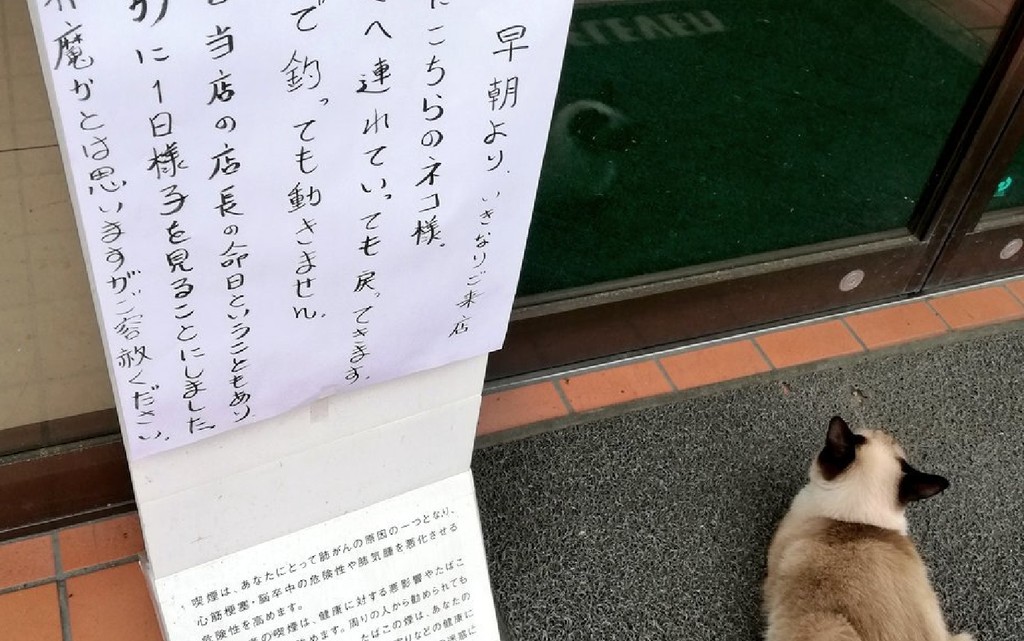 早朝より、いきなりご来店
こちらのネコ様。
へ連れていっても戻ってきます。
で釣っても動きません。
当店の店長の命日ということもあり
に1日様子を見ることにしました。
魔かとは思いますがご容赦ください。
ELEVEN
喫煙は、あなたにとって肺がんの原因の一つとなり、
心筋梗塞・脳卒中の危険性や肺気腫を悪化させる
危険性を高めます。
の喫煙は、健康に対する悪影響やたばこ
めます。周りの人から勧められても
たばこの煙は、あなたの
などの健康に